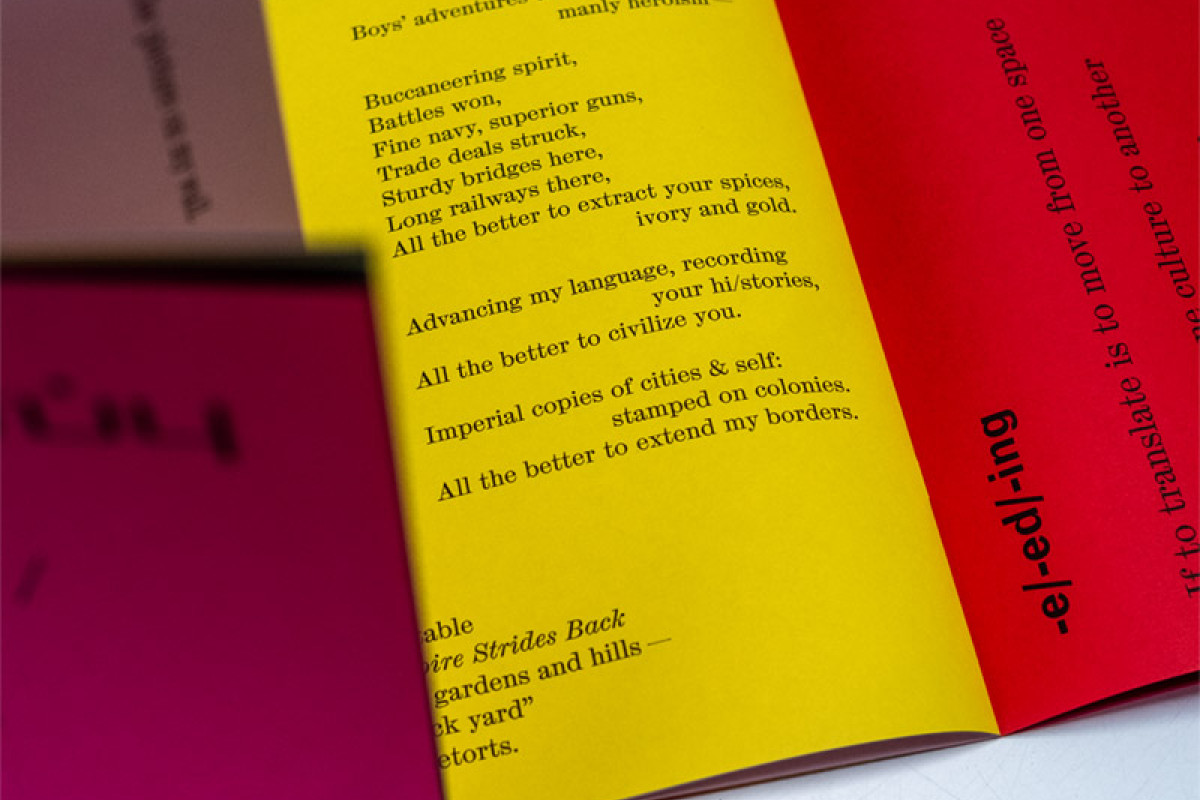 Boys' adventures
manly heroism —
Buccaneering spirit,
Battles won,
Fine navy, superior guns,
Trade deals struck,
Sturdy bridges here,
Long railways there,
All the better to extract your spices,
ivory and gold.
Advancing my language, recording
your hi/stories,
All the better to civilize you.
Imperial copies of cities & self:
stamped on colonies.
All the better to extend my borders.
Strides Back
gardens and hills —
yard”
-e/-ed/-ing
to translate is to move from one space
culture to another